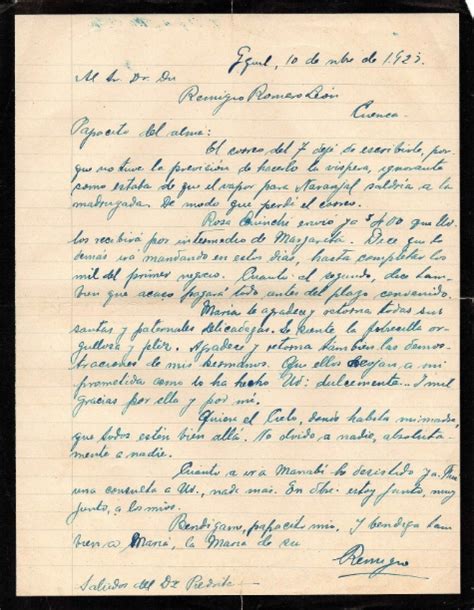 Gquil, 10 de nbre de 1.923.
Al Sr. Dr. Dn
Remigio Romero León
Cuenca
Papacito del alma:
El correo del 7 dejé de escribirle, por-
que no tuve la previsión de hacerlo la víspera, ignorante
como estaba de que el vapor para Naranjal saldría a la
madrugada. De modo que perdí el correo.
Rosa Quinchi envió ya $ 400 que Ud.
los recibirá por intermedio de Margarita. Dice que lo
demás irá mandando en estos días, hasta completar los
mil del primer negocio. Cuanto al segundo, dice tam-
bien que acaso pagará todo antes del plazo convenido.
María le agradece y retorna todas sus
santas y paternales delicadezas. Se siente la pobrecilla or-
gullosa y feliz. Agradece y retorna también las demos-
traciones de mis hermanos. Que ellos acojan a mi
prometida como lo ha hecho Ud: dulcemente. I mil
gracias por ella y por mí.
Quiera el Cielo, donde habita mi madre,
que todos estén bien allá. No olvido a nadie, absoluta-
mente a nadie.
Cuanto a ir a Manabí he desistido ya. Fue
una consulta a Ud., nada más. En dbre. estoy junto, muy
junto, a los míos.
Bendígame, papacito mío. I bendiga tam-
bien a María, la María de su
Remigio
Saludos del Dr